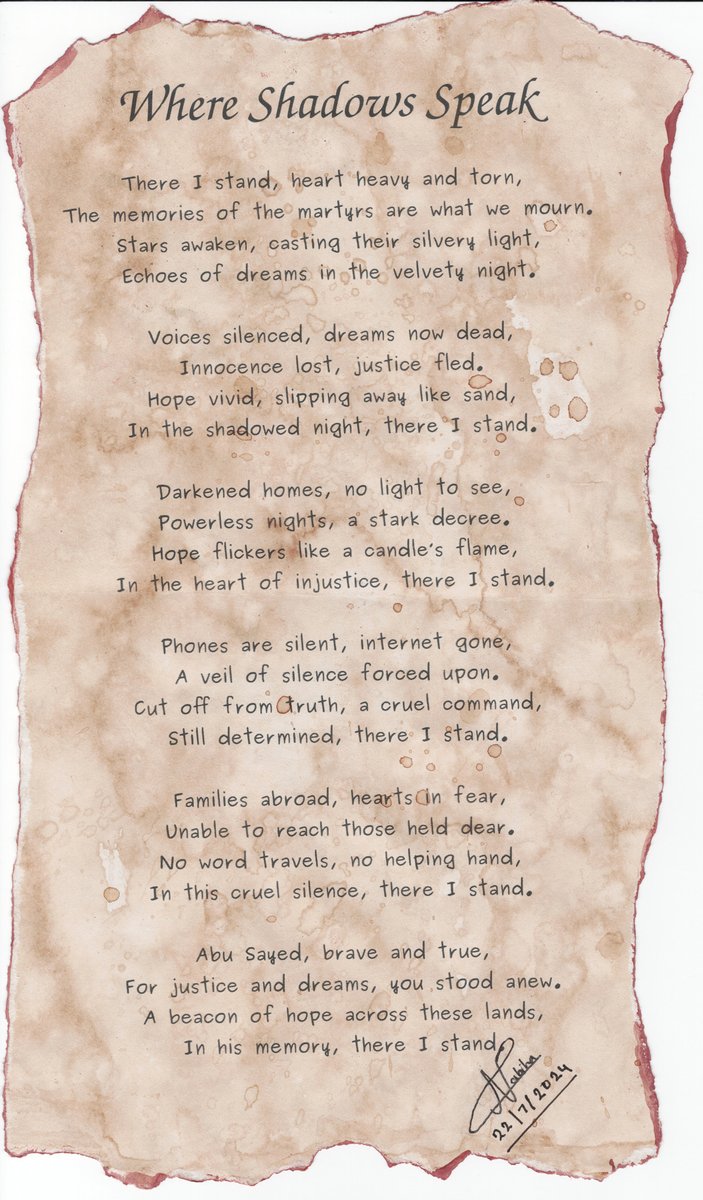 Where Shadows Speak
There I stand, heart heavy and torn,
The memories of the martyrs are what we mourn.
Stars awaken, casting their silvery light,
Echoes of dreams in the velvety night.
Voices silenced, dreams now dead,
Innocence lost, justice fled.
Hope vivid, slipping away like sand,
In the shadowed night, there I stand.
Darkened homes, no light to see,
Powerless nights, a stark decree.
Hope flickers like a candle's flame,
In the heart of injustice, there I stand.
Phones are silent, internet gone,
A veil of silence forced upon.
Cut off from truth, a cruel command,
Still determined, there I stand.
Families abroad, hearts in fear,
Unable to reach those held dear.
No word travels, no helping hand,
In this cruel silence, there I stand.
Abu Sayed, brave and true,
For justice and dreams, you stood anew.
A beacon of hope across these lands,
In his memory, there I stand.
Nabiha
22/7/2024